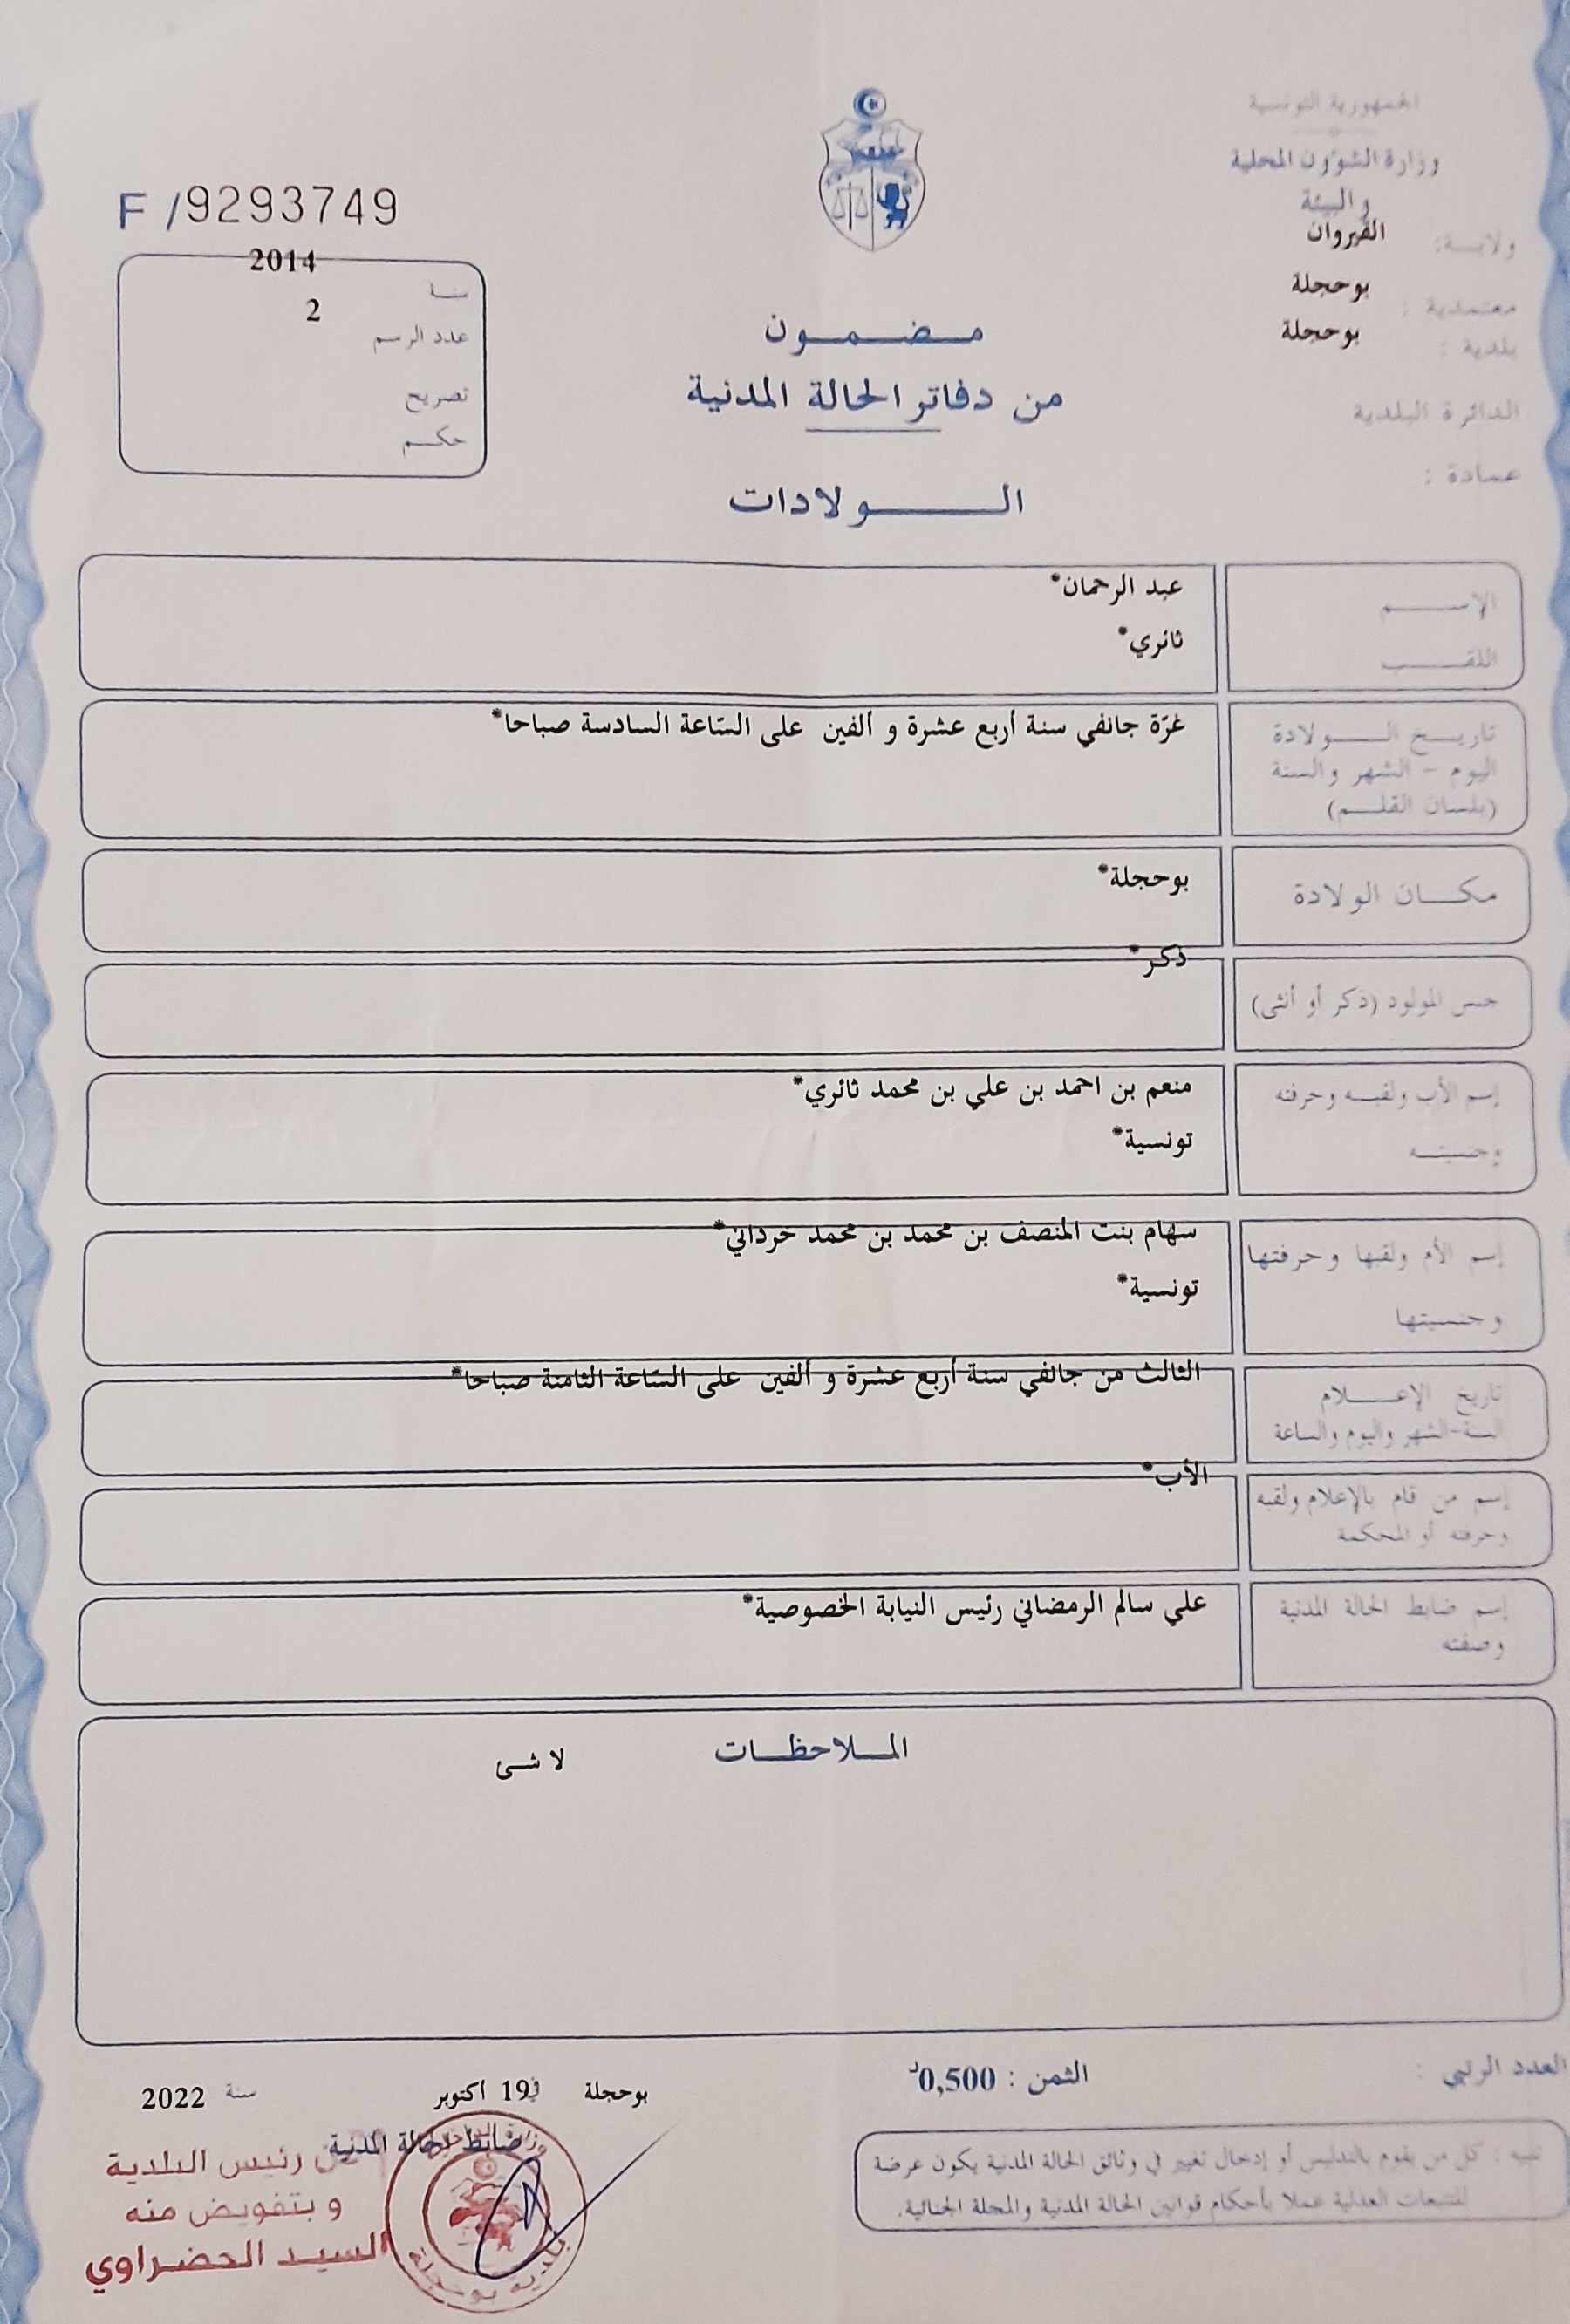 الجمهورية التونسية
وزارة الشؤون المحلية
والبيئة
ولايـة: القيروان
معتمدية : بوحجلة
بلدية : بوحجلة
الدائرة البلدية
عمادة :
F /9293749
2014
سنة
2
عدد الرسم
تصريح
حكم
مضمون
من دفاتر الحالة المدنية
الولادات
الإسم
عبد الرحمان*
اللقب
ثائري*
تاريخ الولادة
اليوم - الشهر والسنة
(بلسان القلم)
غرّة جانفي سنة أربع عشرة و ألفين على السّاعة السادسة صباحا*
مكان الولادة
بوحجلة*
جنس المولود (ذكر أو أنثى)
ذكر*
إسم الأب ولقبه وحرفته
وجنسيته
منعم بن احمد بن علي بن محمد ثائري*
تونسية*
إسم الأم ولقبها وحرفتها
وجنسيتها
سهام بنت المنصف بن محمد بن محمد حرداني*
تونسية*
تاريخ الإعلام
السنة-الشهر واليوم والساعة
الثالث من جانفي سنة أربع عشرة و ألفين على السّاعة الثامنة صباحا*
إسم من قام بالإعلام ولقبه
وحرفته أو المحكمة
الأب*
إسم ضابط الحالة المدنية
وصفته
علي سالم الرمضاني رئيس النيابة الخصوصية*
الملاحظات
لا شئ
العدد الرتبي :
الثمن : 0,500د
بوحجلة في 19 اكتوبر سنة 2022
ضابط الحالة المدنية
تنبيه : كل من يقوم بالتدليس أو إدخال تغيير في وثائق الحالة المدنية يكون عرضة
للتتبعات العدلية عملا بأحكام قوانين الحالة المدنية والمجلة الجنائية.
عن رئيس البلدية
و بتفويض منه
السيد الحضراوي
بلدية بوحجلة